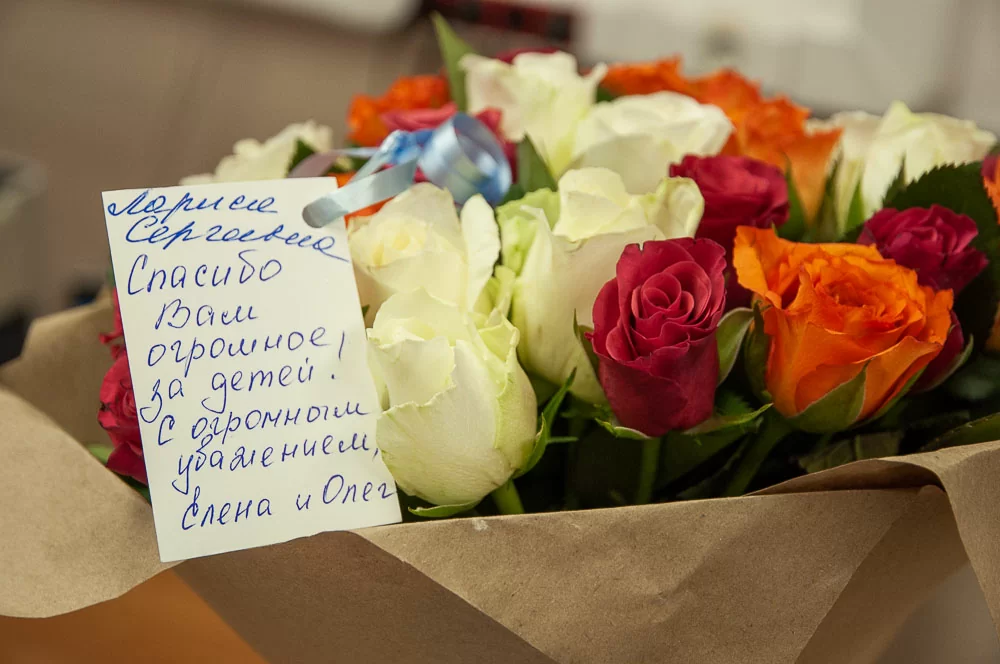 Лариса
Сергеевна
Спасибо
Вам
огромное
за детей!
С огромным
уважением,
Елена и Олег